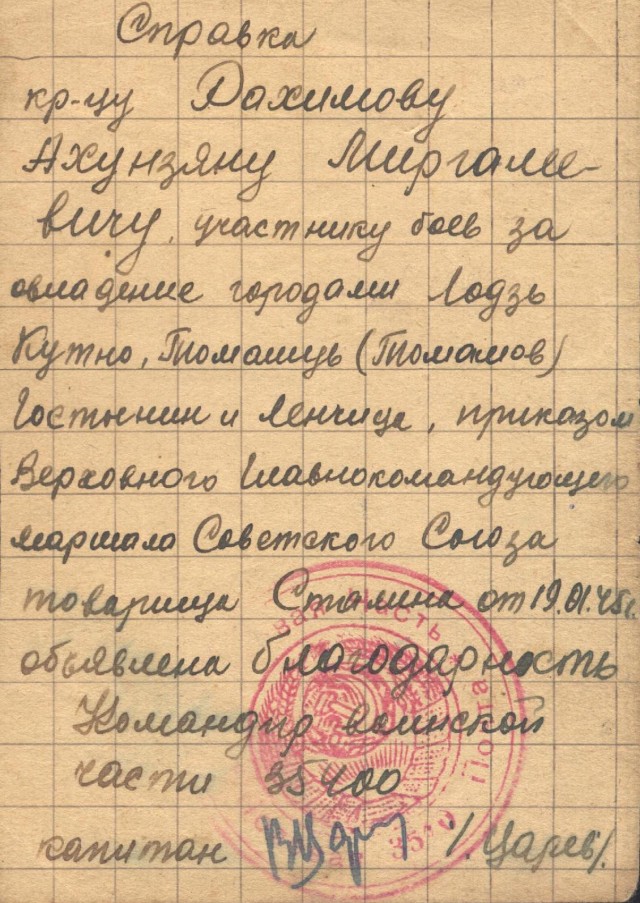 Справка
кр-цу Рахимову
Ахунзяну Миргале-
вичу, участнику боев за
овладение городами Лодзь
Кутно, Томашув (Томашов)
Гостынин и Ленчица, приказом
Верховного Главнокомандующего
маршала Советского Союза
товарища Сталина от 19.01.45г.
объявлена благодарность
Командир воинской
части 35400
капитан /Царев/.
часть
Полевая